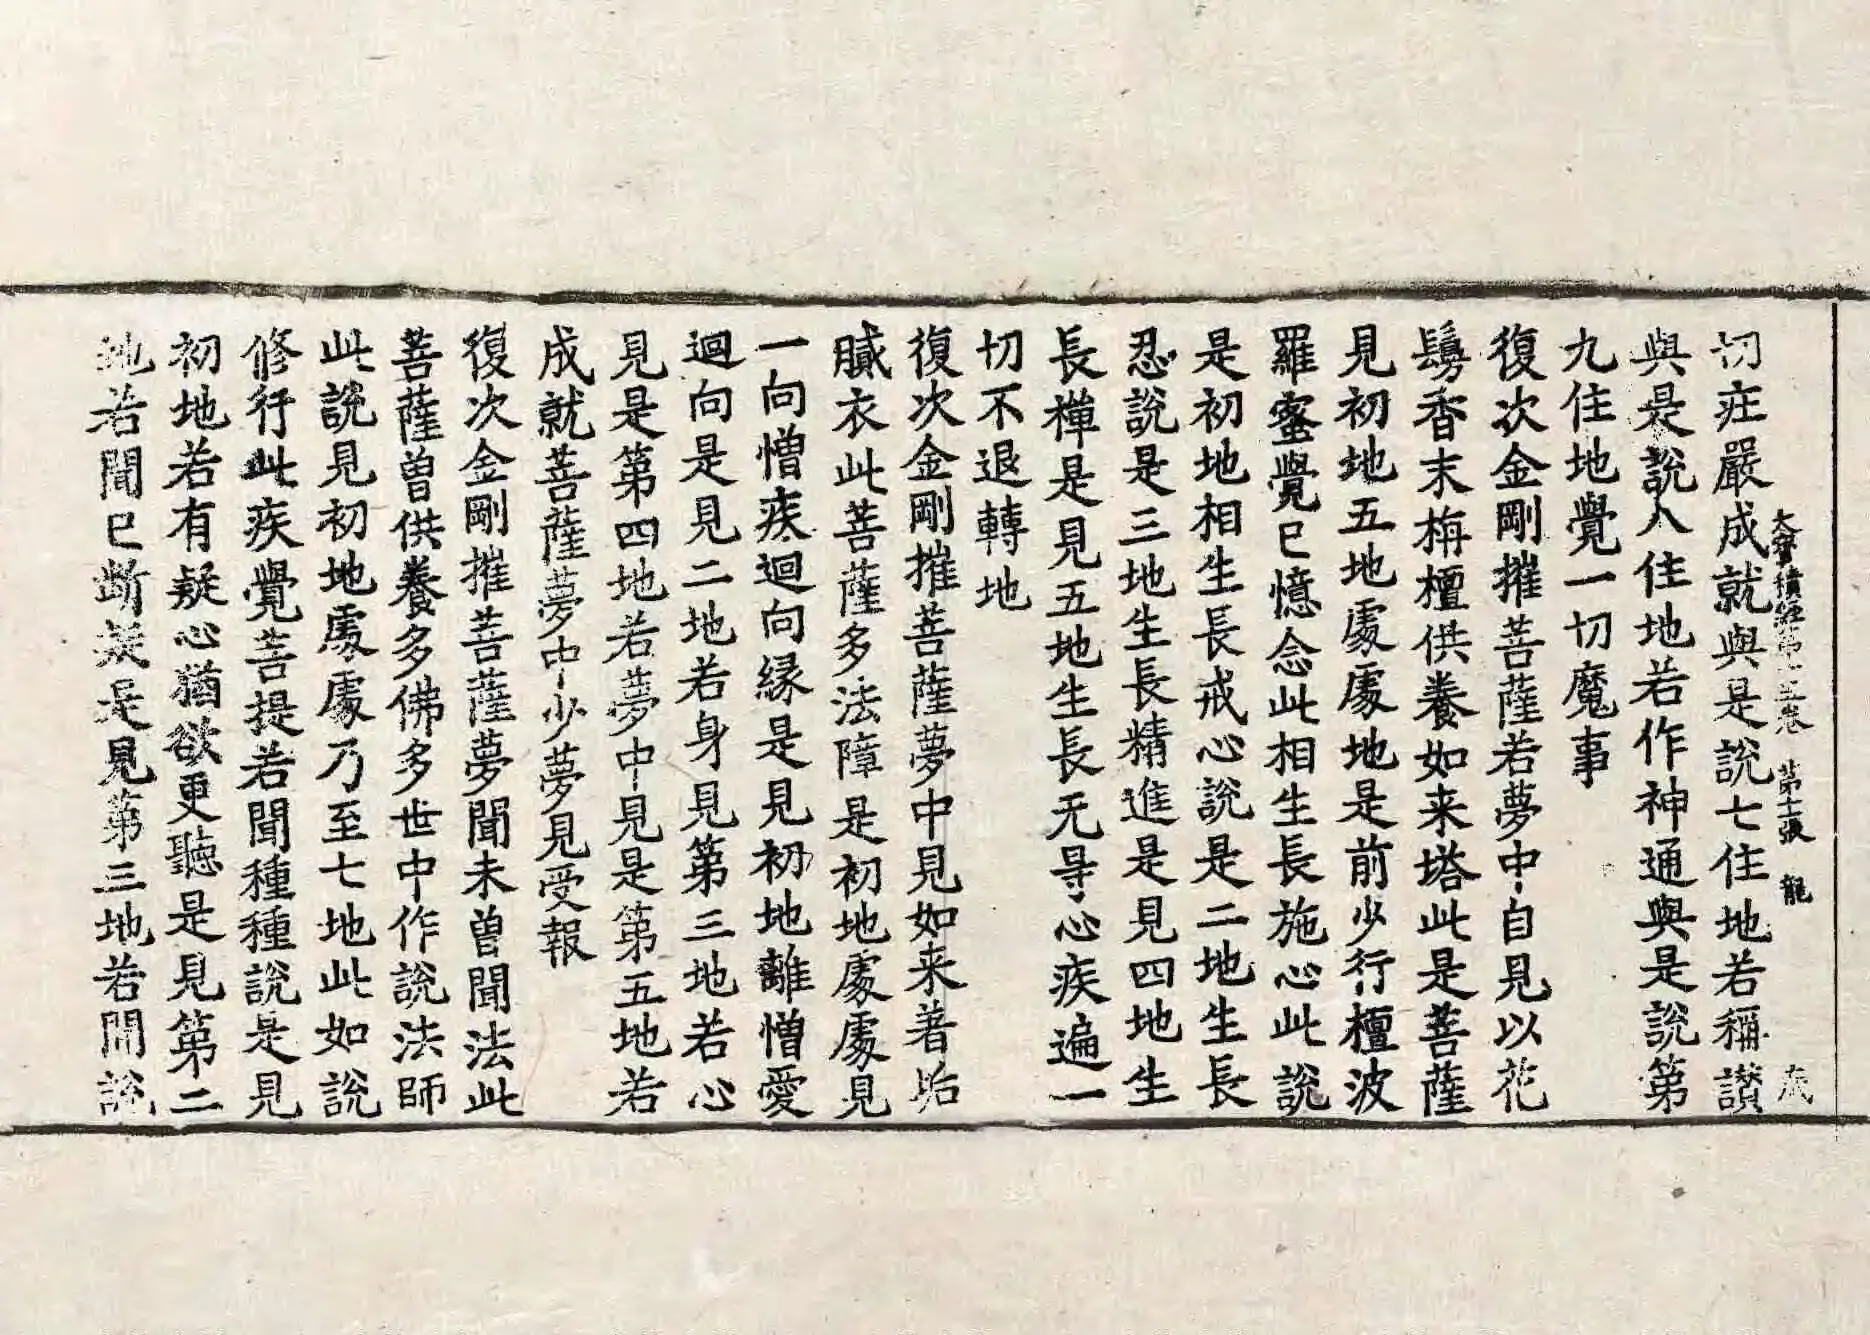 大寶積經第十五卷 第十二張 龍
切疘嚴成就與是說七住地若稱讃
與是說八住地若作神通與是說第
九住地覺一切魔事
復次金剛摧菩薩若夢中自見以花
鬘香末栴檀供養如来塔此是菩薩
見初地五地處處地是前少行檀波
羅蜜覺已憶念此相生長施心此說
是初地相生長戒心說是二地生長
忍說是三地生長精進是見四地生
長禪是見五地生長无㝵心疾遍一
切不退轉地
復次金剛摧菩薩夢中見如来著垢
膩衣此菩薩多法障是初地處處見
一向憎疾迴向緣是見初地離憎愛
迴向是見二地若身見第三地若心
見是第四地若夢中見是第五地若
成就菩薩夢中少夢見受報
復次金剛摧菩薩夢聞未曾聞法此
菩薩曾供養多佛多世中作說法師
此說見初地處處乃至七地此如說
修行此疾覺菩提若聞種種說是見
初地若有疑心猶欲更聽是見第二
地若聞已斷疑是見第三地若聞說